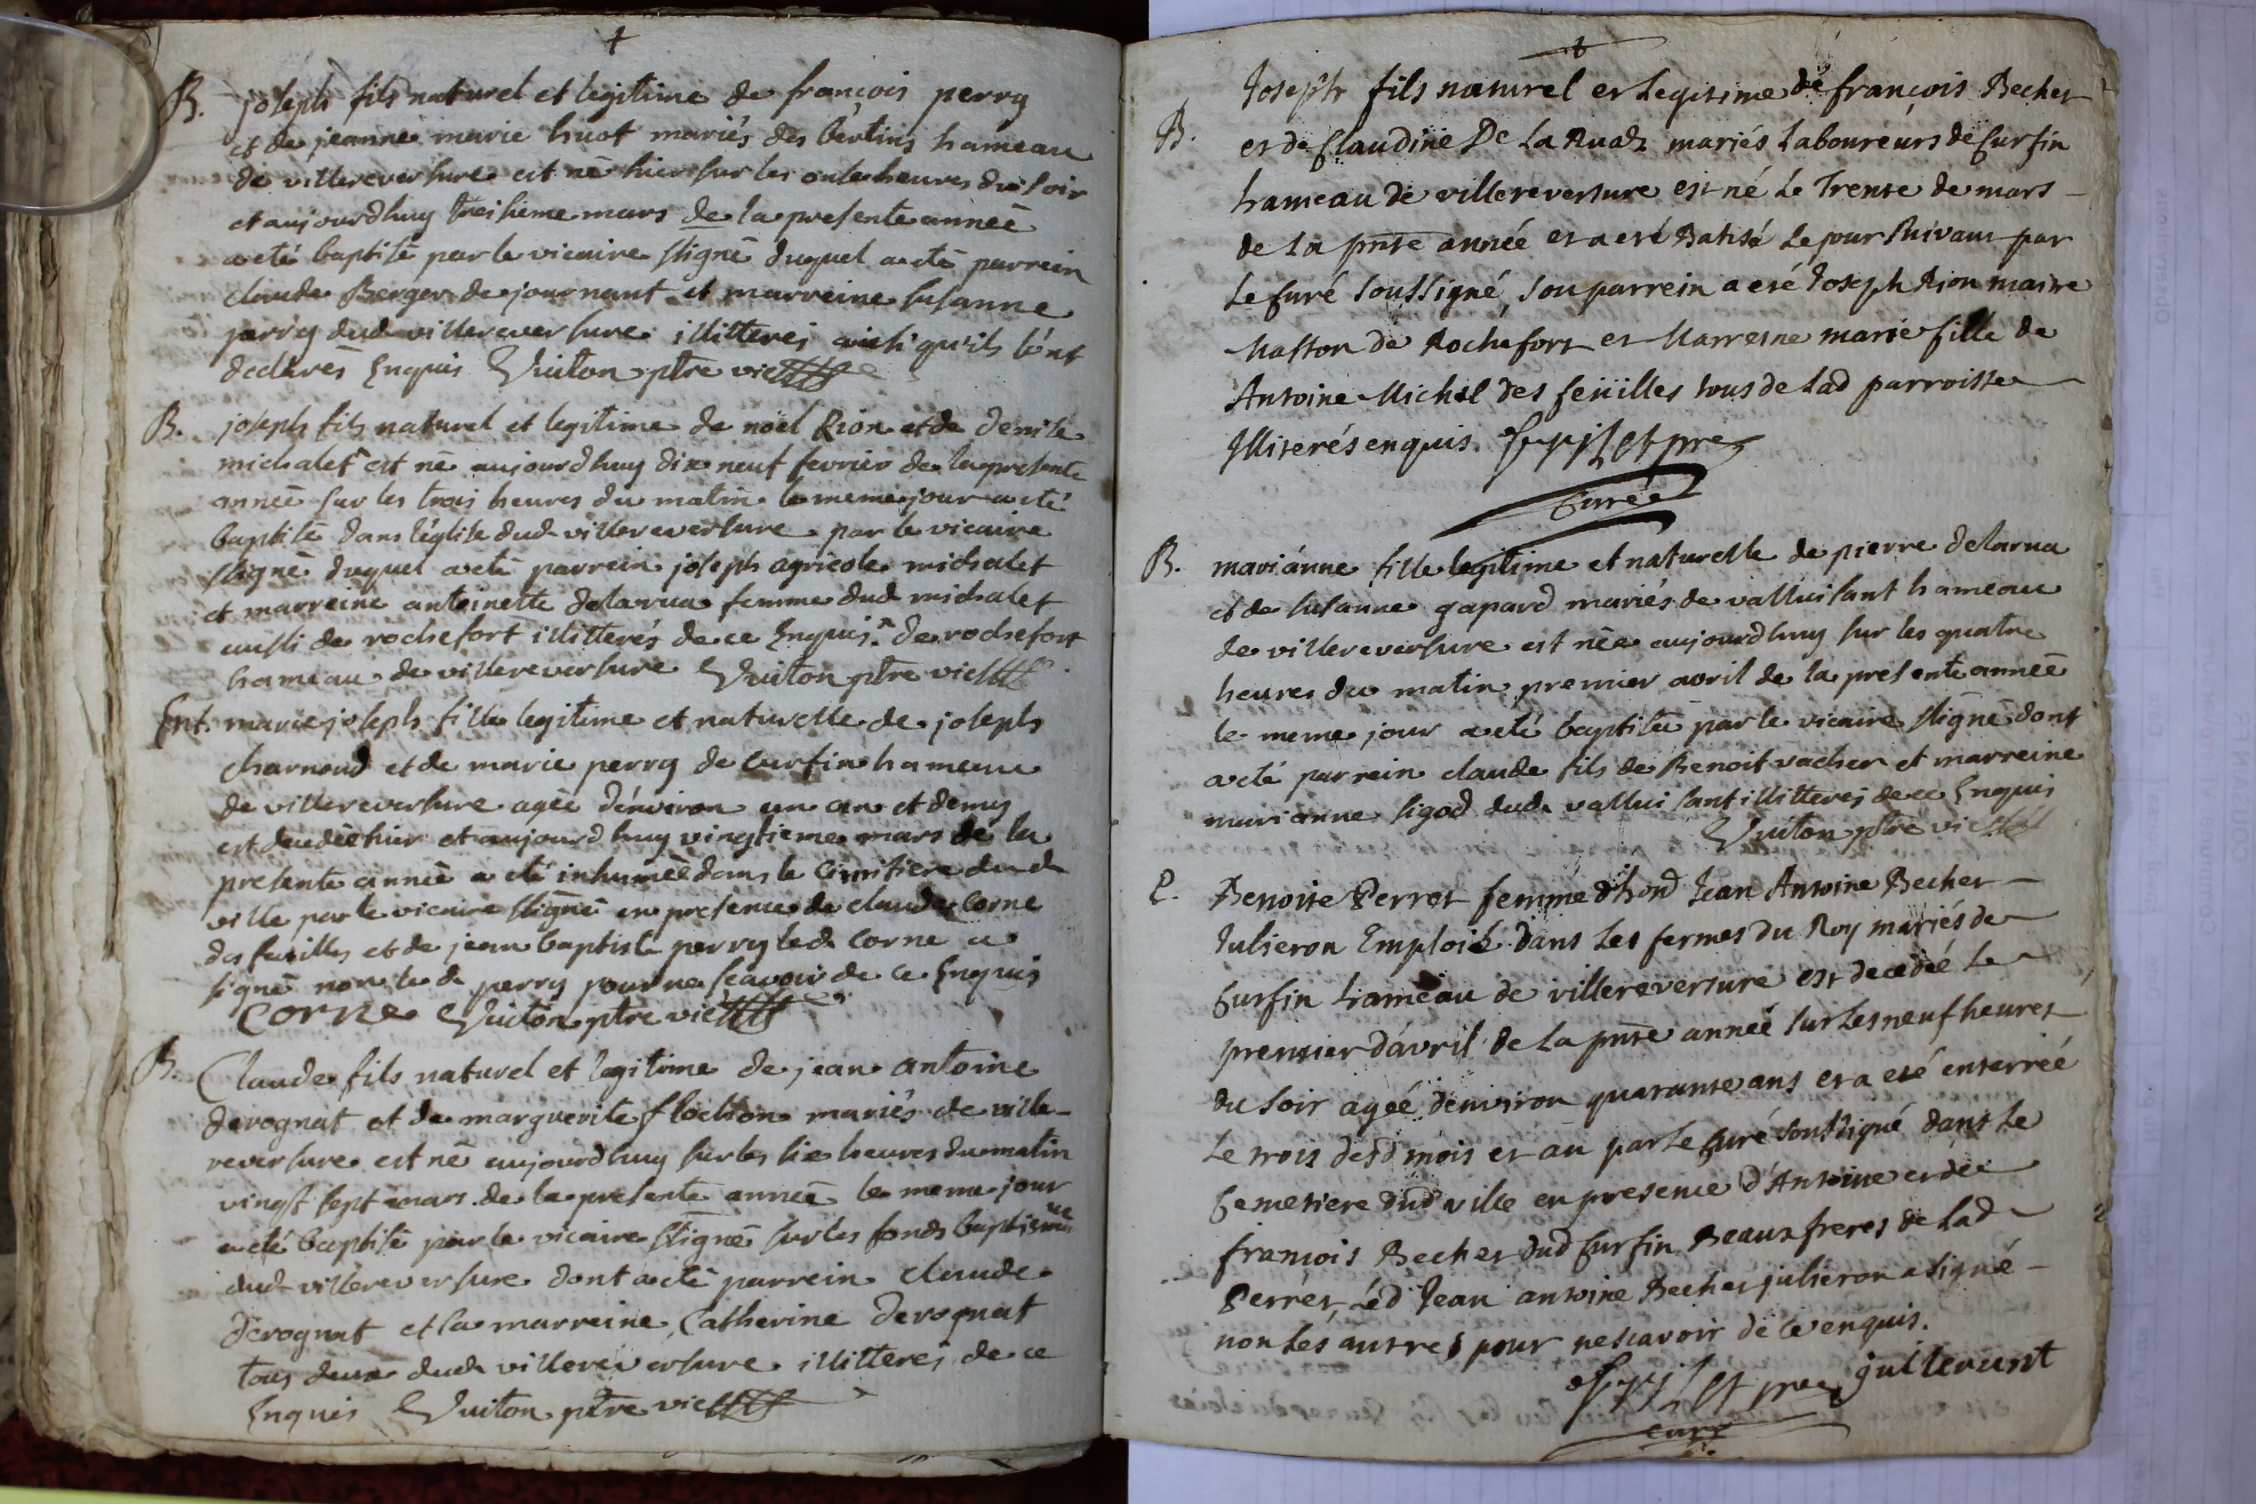 +
B. joseph fils naturel et legitime de françois perry
et de jeanne marie huot mariés des bertins hameau
de villereversure est né hier sur les onse heures du soir
et aujourdhuy treisieme mars de la presente année
a eté baptisé par le vicaire ssigné duquel a eté parrein
claude Berger de journant et marreine susanne
perry dud villereversure illitterés ainsi qu'ils l'ont
declarés Enquis Vuiton ptre vic
B. joseph fils naturel et legitime de noel Rion et de denise
michalet est né aujourdhuy dix neuf fevrier de la presente
année sur les trois heures du matin le meme jour a eté
baptisé dans l'église dud villereversure par le vicaire
ssigné duquel a eté parrein joseph agricole michalet
et marreine antoinette delarua femme dud michalet
aussi de rochefort illitterés de ce Enquis de rochefort
hameau de villereversure Vuiton ptre vic
Ent. marie joseph fille legitime et naturelle de joseph
charnoud et de marie perry de Cursin hameau
de villereversure agée d'environ un an et demy
est decedée hier et aujourdhuy vingtieme mars de la
presente année a eté inhumée dans le cimitiere dud
ville par le vicaire ssigné en presence de claude Corne
des feuilles et de jean baptiste perry led Corne a
signé non le d perry pour ne scavoir de ce Enquis
Corne Vuiton ptre vic
B. Claude fils naturel et legitime de jean antoine
derognat et de marguerite flochon mariés de ville-
reversure est né aujourdhuy sur les six heures du matin
vingt sept mars de la presente année le meme jour
a eté baptisé par le vicaire ssigné sur les fonds baptismeaux
dud villereversure dont a eté parrein claude
derognat et la marreine Catherine derognat
tous deux dud villereversure illitterés de ce
Enquis Vuiton ptre vic
+
Joseph fils naturel et legitime de françois Becher
B. et de Claudine De La Ruaz mariés Laboureurs de Cursin
hameau de villereversure est né Le Trente de mars
de La pnte année et a eté Batisé Le jour suivant par
Le Curé soussigné, son parrein a eté Joseph Rion maitre
Masson de Rochefort et Marreine marie fille de
Antoine Michel des feüilles tous de Lad parroisse
Illiterés enquis. pre
Curé
B. marianne fille legitime et naturelle de pierre delarua
et de susanne gapard mariés de valluisant hameau
de villereversure est née aujourdhuy sur les quatre
heures du matin premier avril de la presente année
le meme jour a eté baptisée par le vicaire ssigné dont
a eté parrein claude fils de Benoit vacher et marreine
marianne sigod dud valluisant illitterés de ce Enquis
Vuiton ptre vic
E. Benoite Perret femme d'hond Jean Antoine Becher
Julieron Emploié dans Les fermes du Roy mariés de
Cursin hameau de villereversure est decedée Le
premier d'avril de La pnte année sur Les neuf heures
du soir agée d'environ quarante ans et a eté enterrée
Le trois desd mois et an par Le Curé soussigné dans Le
Cemetiere dud ville en presence d'Antoine et de
françois Becher dud Cursin Beaux freres de Lad
Perret, Led Jean antoine Becher julieron a signé
non Les autres pour ne scavoir de ce enquis.
pre
curé